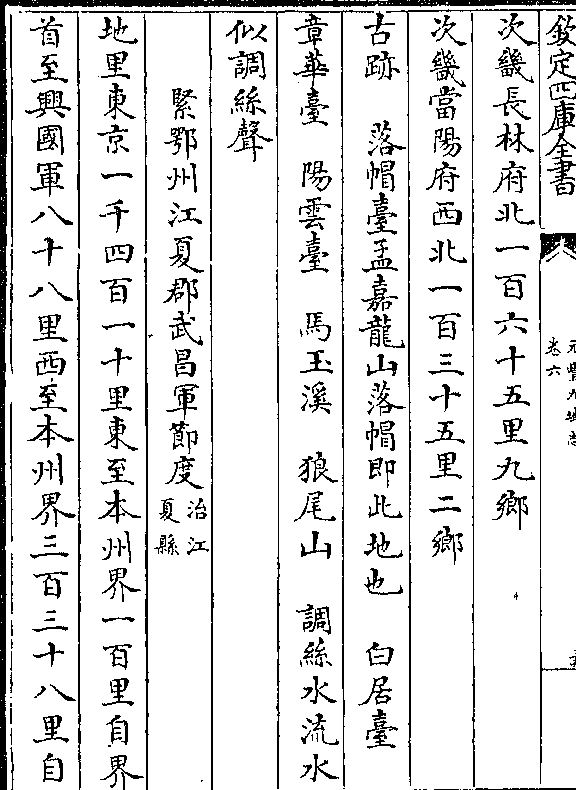 欽定四庫全書
元豐九域志
卷六
次畿長林府北一百六十五里九鄉
次畿當陽府西北一百三十五里二鄉
古跡　落帽臺孟嘉龍山落帽即此地也　白居臺
章華臺　陽雲臺　馬玉溪　狼尾山　調絲水流水
似調絲聲
緊鄂州江夏郡武昌軍節度治江夏縣
地里東京一千四百一十里東至本州界一百里自界
首至興國軍八十八里西至本州界三百三十八里自